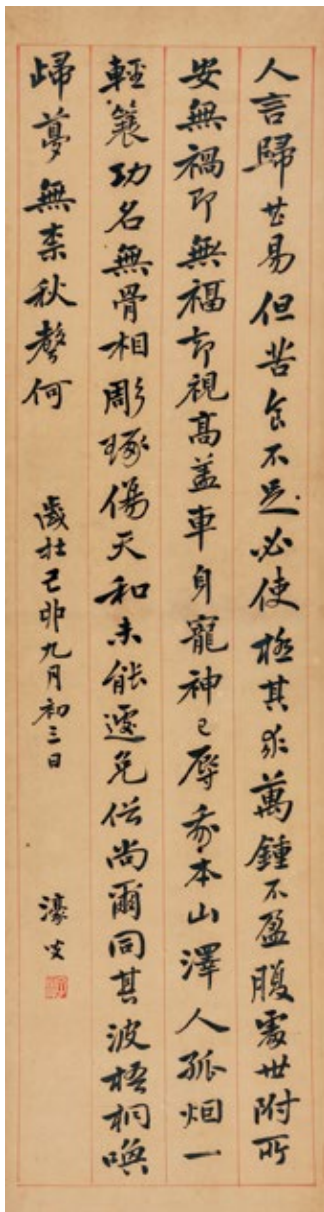 人言歸甚易但苦食不足必使極其求萬鍾不盈腹處世附所
安無禍即無福却視高蓋車身寵神已辱我本山澤人孤烟一
輕簑功名無骨相彫琢傷天和未能遽免俗尚爾同其波梧桐喚
歸夢無柰秋聲何
歲在己卯九月初三日
濠叟